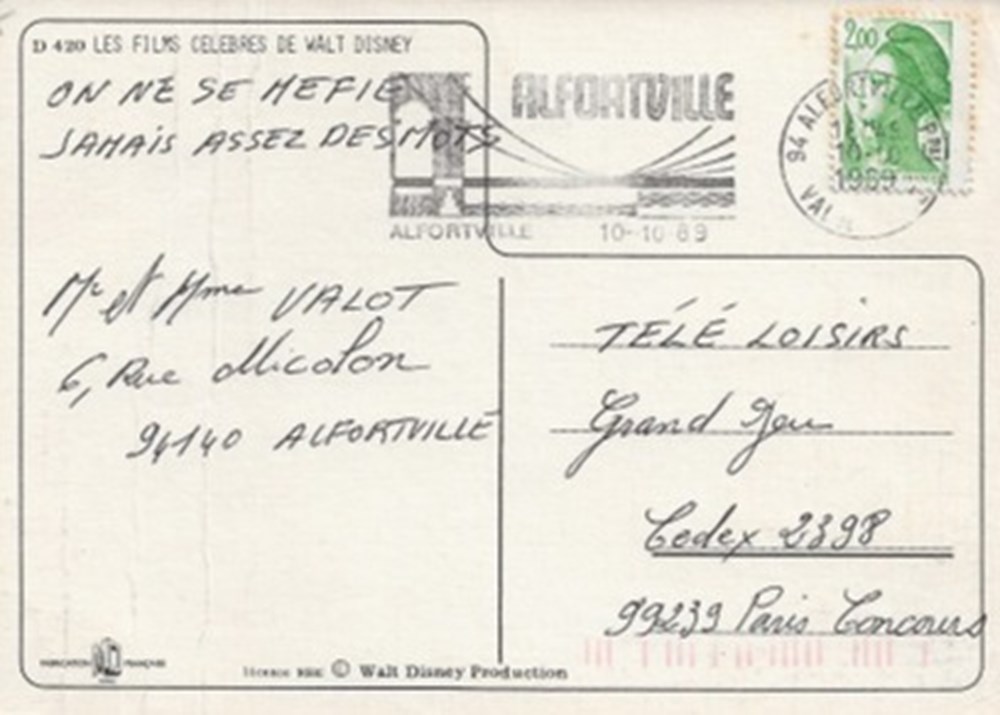 D 420 LES FILMS CELEBRES DE WALT DISNEY
ON NE SE MEFIE
JAMAIS ASSEZ DES MOTS
ALFORTVILLE
ALFORTVILLE 10-10 89
2,00
94 ALFORTVILLE
10-10
1989
Mr et Mme VALOT
6, Rue Micolon
94140 ALFORTVILLE
TÉLÉ LOISIRS
Grand Jeu
Cedex 2398
99239 Paris Concours
FABRICATION FRANÇAISE
licence © Walt Disney Production